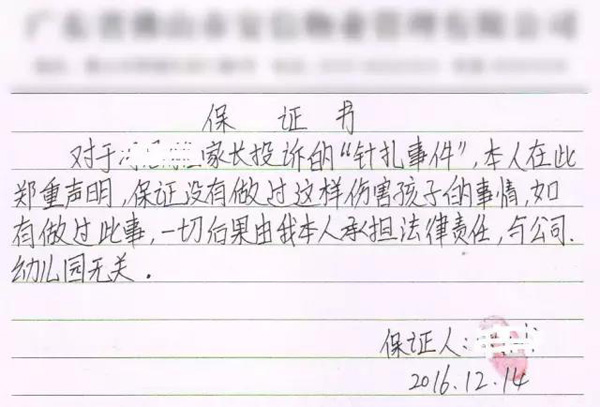 保证书
对于家长投诉的“针扎事件”,本人在此
郑重声明,保证没有做过这样伤害孩子的事情,如
有做过此事,一切后果由我本人承担法律责任,与公司.
幼儿园无关.
保证人:
2016.12.14